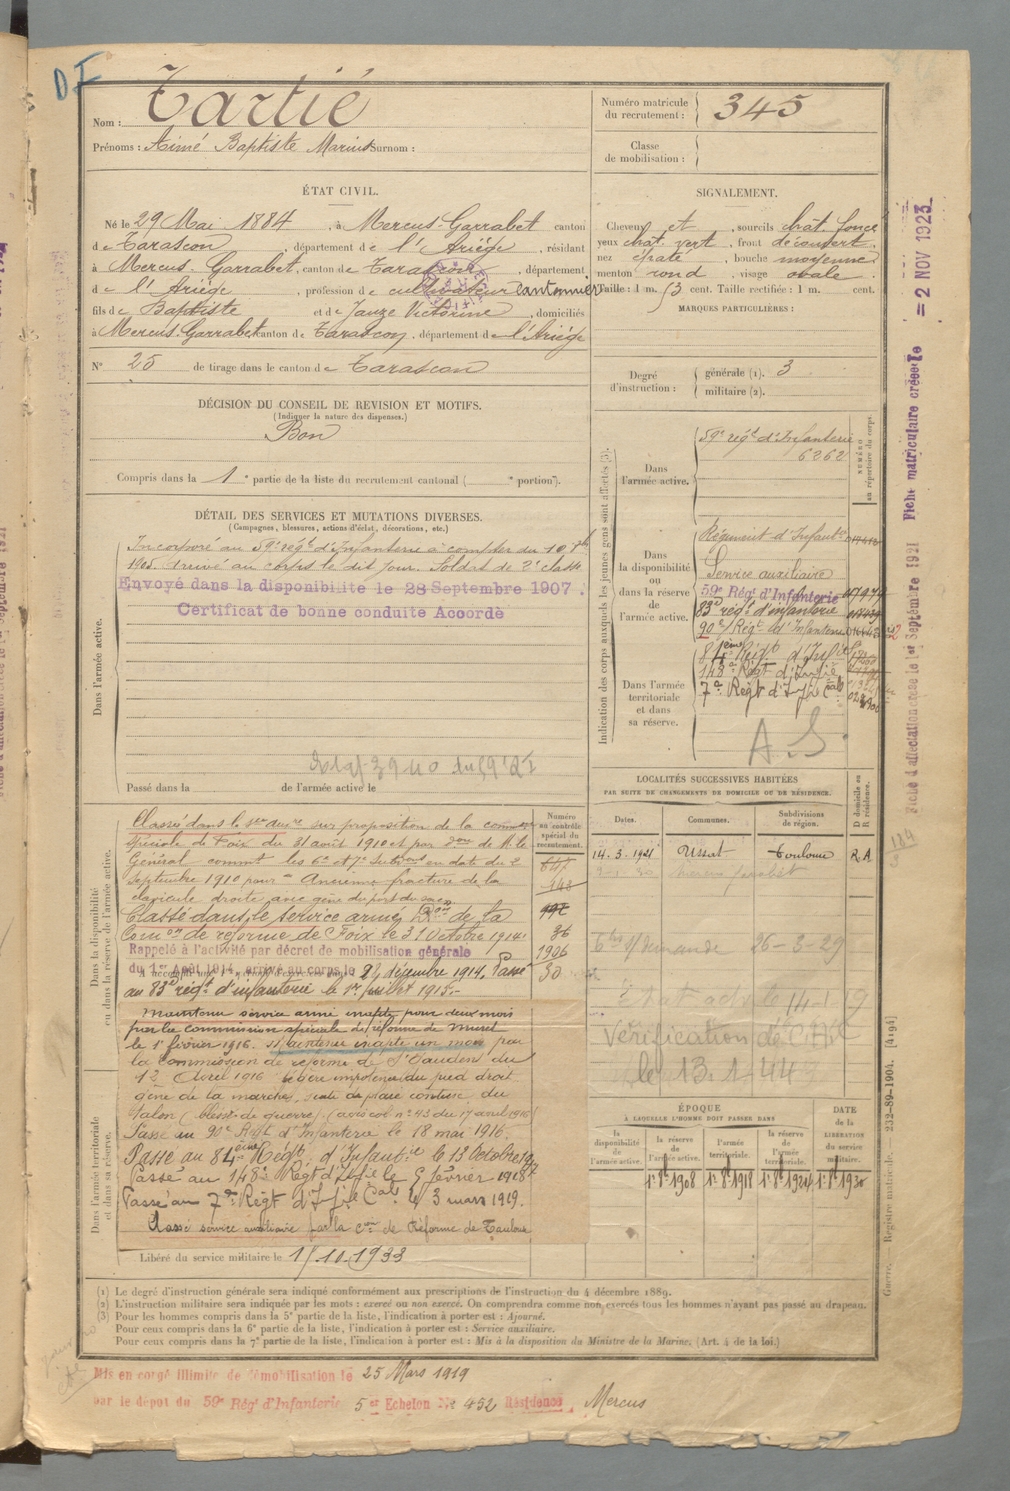 DF
Nom : Tartié
Prénoms : Aimé Baptiste Marius Surnom :
Numéro matricule du recrutement : 345
Classe de mobilisation :
ÉTAT CIVIL.
Né le 29 Mai 1884, à Mercus-Garrabet canton
de Tarascon, département de l'Ariége, résidant
à Mercus-Garrabet, canton de Tarascon, département
de l'Ariége, profession de cultivateur cantonnier
fils de Baptiste et de Jauze Victorine, domiciliés
à Mercus-Garrabet canton de Tarascon, département de l'Ariége
N° 25 de tirage dans le canton de Tarascon
SIGNALEMENT.
Cheveux et, sourcils chat. foncé
yeux chat. vert, front découvert,
nez épaté, bouche moyenne
menton rond, visage ovale.
Taille : 1 m. 53 cent. Taille rectifiée : 1 m. cent.
MARQUES PARTICULIÈRES :
Degré d'instruction :
générale (1). 3
militaire (2).
DÉCISION DU CONSEIL DE REVISION ET MOTIFS.
(Indiquer la nature des dispenses.)
Bon
Compris dans la 1e partie de la liste du recrutement cantonal ( e portion).
DÉTAIL DES SERVICES ET MUTATIONS DIVERSES.
(Campagnes, blessures, actions d'éclat, décorations, etc.)
Dans l'armée active.
Incorporé au 59e régt d'Infanterie à compter du 10 7bre
1905. Arrivé au corps le dit jour. Soldat de 2e classe
Envoyé dans la disponibilité le 28 Septembre 1907.
Certificat de bonne conduite Accordé
Passé dans la de l'armée active le
Indication des corps auxquels les jeunes gens sont affectés (3).
NUMÉRO au répertoire du corps.
Dans l'armée active.
59e régt d'Infanterie
6262
Dans la disponibilité ou dans la réserve de l'armée active.
Régiment d'Infanterie
Service auxiliaire
59e Régt d'Infanterie
83e régt d'infanterie
90e Régt d'Infanterie
Dans l'armée territoriale et dans sa réserve.
84ème Régt d'Infie
148e Régt d'Infie
7e Régt d'Infie Cale
A.S.
Dans la disponibilité ou dans la réserve de l'armée active.
Numéro au contrôle spécial du recrutement.
Classé dans le sce auxre sur proposition de la comm
spéciale de Foix du 31 août 1910 et par don de M. le
Général commt les 6e et 7e Subdons en date du 2
Septembre 1910 pour Ancienne fracture de la
clavicule droite avec gêne du port du sac
Classé dans le service armé Don de la
Comon de réforme de Foix le 31 Octobre 1914.
Rappelé à l'activité par décret de mobilisation générale
du 1er Août 1914, arrivé au corps le 24 décembre 1914. Passé
au 83e régt d'infanterie le 1er juillet 1915.
647
148
36
1906
30
Dans l'armée territoriale et dans sa réserve.
Maintenu service armé inapte pour deux mois
par la commission spéciale de réforme de Muret
le 1er février 1916. Maintenu inapte un mois par
la commission de réforme de St Gaudens du
12 Avril 1916 légère impotence du pied droit
gêne de la marche, suite de plaie contuse du
talon (blessé de guerre) (avis col n° 43 du 17 avril 1916)
Passé au 90e Régt d'Infanterie le 18 mai 1916.
Passé au 84ème Régt d'Infantie le 13 Octobre 1917
Passé au 148e Régt d'Infie le 5 février 1918
Passé au 7e Régt d'Infie Cale le 3 mars 1919.
Classé service auxiliaire par la Con de Réforme de Toulouse
Libéré du service militaire le 15.10.1933
LOCALITÉS SUCCESSIVES HABITÉES
PAR SUITE DE CHANGEMENTS DE DOMICILE OU DE RÉSIDENCE.
Dates. Communes. Subdivisions de région. D domicile ou R résidence.
14.3.1921 Ussat Toulouse R.A
26-3-29
Vérification de
le 13.1.44
ÉPOQUE
À LAQUELLE L'HOMME DOIT PASSER DANS
la disponibilité de l'armée active.
la réserve de l'armée active.
l'armée territoriale.
la réserve de l'armée territoriale.
DATE de la LIBÉRATION du service militaire.
1er 8bre 1908 1er 8bre 1918 1er 8bre 1924 1er 8bre 1930
(1) Le degré d'instruction générale sera indiqué conformément aux prescriptions de l'instruction du 4 décembre 1889.
(2) L'instruction militaire sera indiquée par les mots : exercé ou non exercé. On comprendra comme non exercés tous les hommes n'ayant pas passé au drapeau.
(3) Pour les hommes compris dans la 5e partie de la liste, l'indication à porter est : Ajourné.
Pour ceux compris dans la 6e partie de la liste, l'indication à porter est : Service auxiliaire.
Pour ceux compris dans la 7e partie de la liste, l'indication à porter est : Mis à la disposition du Ministre de la Marine. (Art. 4 de la loi.)
Mis en congé illimité de démobilisation le 25 Mars 1919
par le dépôt du 59e Régt d'Infanterie 5e Echelon N° 452 Résidence, Mercus
Fiche d'affectation créée le 1er Septembre 1921 Fiche matriculaire créée le = 2 NOV 1923
184
3
Guerre. — Registre matricule. 232-89-1904. [4194]